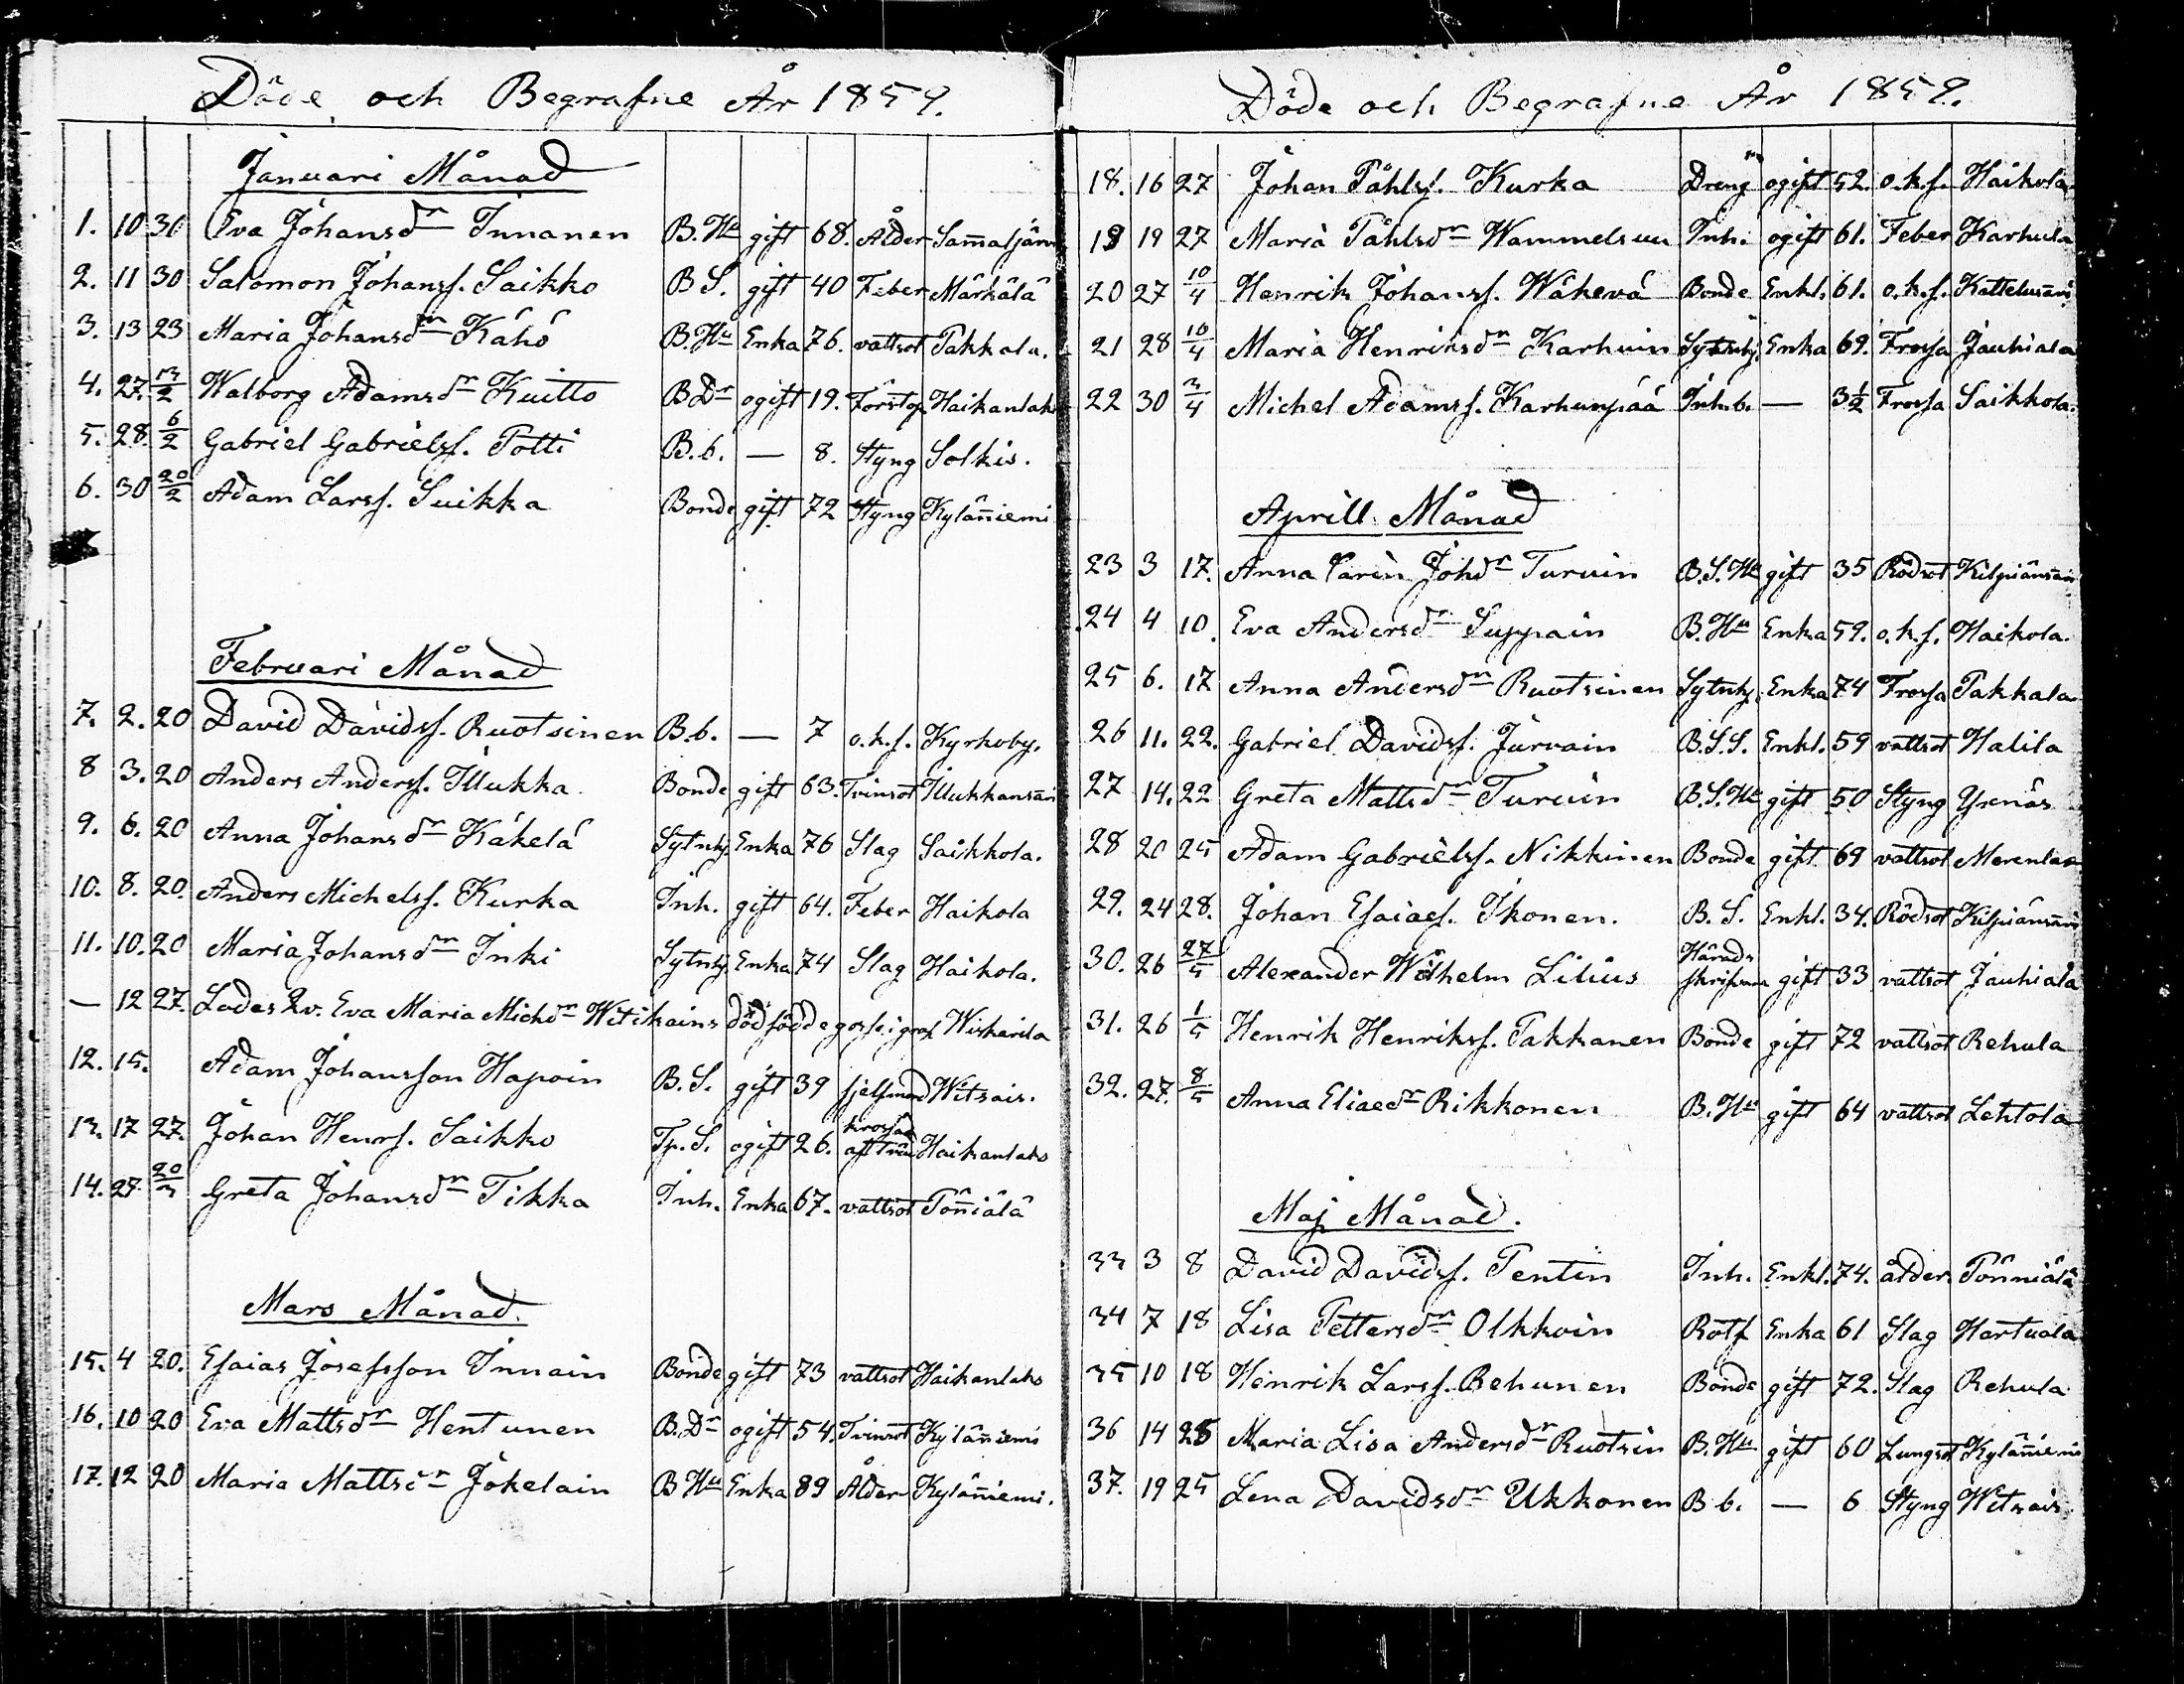 Döde och Begrafne År 1859.
Januari Månad
1. 10 30 Eva Johansdr Innanen B.Hu gift 68. Ålder Sam̄aljärvi
2. 11 30 Salomon Johanss. Saikko B S. gift 40 Feber Märkälä
3. 13 23 Maria Johansdr Kähö B.Hu Enka 76. vattsot Pakkala.
4. 27. 13/2 Walborg Adamsdr Kuitto B Dr ogift 19. Förstop Haikanlaks
5. 28. 6/2 Gabriel Gabrielss. Potti B.b. — 8. Styng Solkis.
6. 30 20/2 Adam Larss. Suikka Bonde gift 72 Styng Kylän̄iemi
Februari Månad
7. 2. 20 David Davidss. Ruotsinen B.b. — 7 o.k.s. Kyrkoby.
8 3. 20 Anders Anderss. Illukka Bonde gift 63. Tvinsot Illukkansaari
9. 6. 20 Anna Johansdr Käkelä Sytnhj. Enka 76 Slag Saikkola.
10. 8. 20. Anders Michelss. Kurka Inh. gift 64. Feber Haikola
11. 10. 20 Maria Johansdr Inki Sytnhj Enka 74 Slag Haikola.
— 12 27. Lades Qv. Eva Maria Michdr Witikains dödfödde gosse i graf Wiskarila
12. 15. Adam Johansson Hapoin B.S. gift 39 sjelfmord Witsais.
13. 17 27. Johan Henrs. Saikko Tp. S. ogift 26. krossad af träd Haikanlaks
14. 27. 20/3 Greta Johansdr Tikka Inh. Enka 67. vattsot Pön̄iälä
Mars Månad.
15. 4 20. Esaias Josefsson Innain Bonde gift 73 vattsot Haikanlaks
16. 10 20 Eva Mattsdr Hentunen B.Dr ogift 54. Tvinsot Kylän̄iemi
17. 12 20 Maria Mattsdr Jokelain B Hu Enka 89 Ålder Kylän̄iemi.
Döde och Begrafne År 1859.
18. 16 27 Johan Påhlss. Kurka Dreng ogift 52. o.k.s. Haikola
19 19 27 Maria Påhlsdr Wammelsuu Inh. ogift 61. Feber Karhula
20 27 10/4 Henrik Johanss. Wäkevä Bonde Enkl. 61. o.k.s.
21 28 10/4 Maria Henriksdr Karhuin Sytnhj Enka 69. Frossa Jauhiala
22 30 3/4 Michel Adamss. Karhunpää Inh.b. — 3½ Frossa Saikkola.
Aprill Månad
23 3 17. Anna Carin Johdr Turuin B.S.Hu gift 35 Rödsot Kilpiänsaari
24 4 10. Eva Andersdr Suppain B.Hu Enka 59. o.k.s. Haikola.
25 6. 17 Anna Andersdr Ruotsinen Sytnhj. Enka 74 Frossa Pakkala
26 11. 22. Gabriel Davidss. Jurvain B.S.S. Enkl. 59 vattsot Halila
27 14. 22 Greta Mattsdr Turuin B.S.Hu gift 50 Styng Yxnäs
28 20 25 Adam Gabrielss. Nikkinen Bonde gift 69 vattsot Merenlaks
29. 24 28. Johan Esaiaes. Ikonen. B.S. Enkl. 34. Rödsot Kilpiänsaari
30. 26 27/5 Alexander Wilhelm Lilius Häradsskrifvare gift 33 vattsot Jauhiala
31. 26 1/5 Henrik Henrikss. Pakkanen Bonde gift 72 vattsot Rehula
32. 27. 8/5 Anna Eliaedr Rikkonen B.Hu gift 64 vattsot Lehtola
Maj Månad.
33 3 8 David Davidss. Pentin Inh. Enkl. 74. ålder Pönniälä
34 7 18 Lisa Pettersdr Olkkoin Rotf Enka 61 Slag Hartuala
35 10 18 Henrik Larss. Rehunen Bonde gift 72. Slag Rehula
36 14 25 Maria Lisa Andersdr Ruotsin B.Hu gift 60 Lungsot Kylän̄iemi
37. 19 25 Lena Davidsdr Ukkonen B b. — 6 Styng Witsais